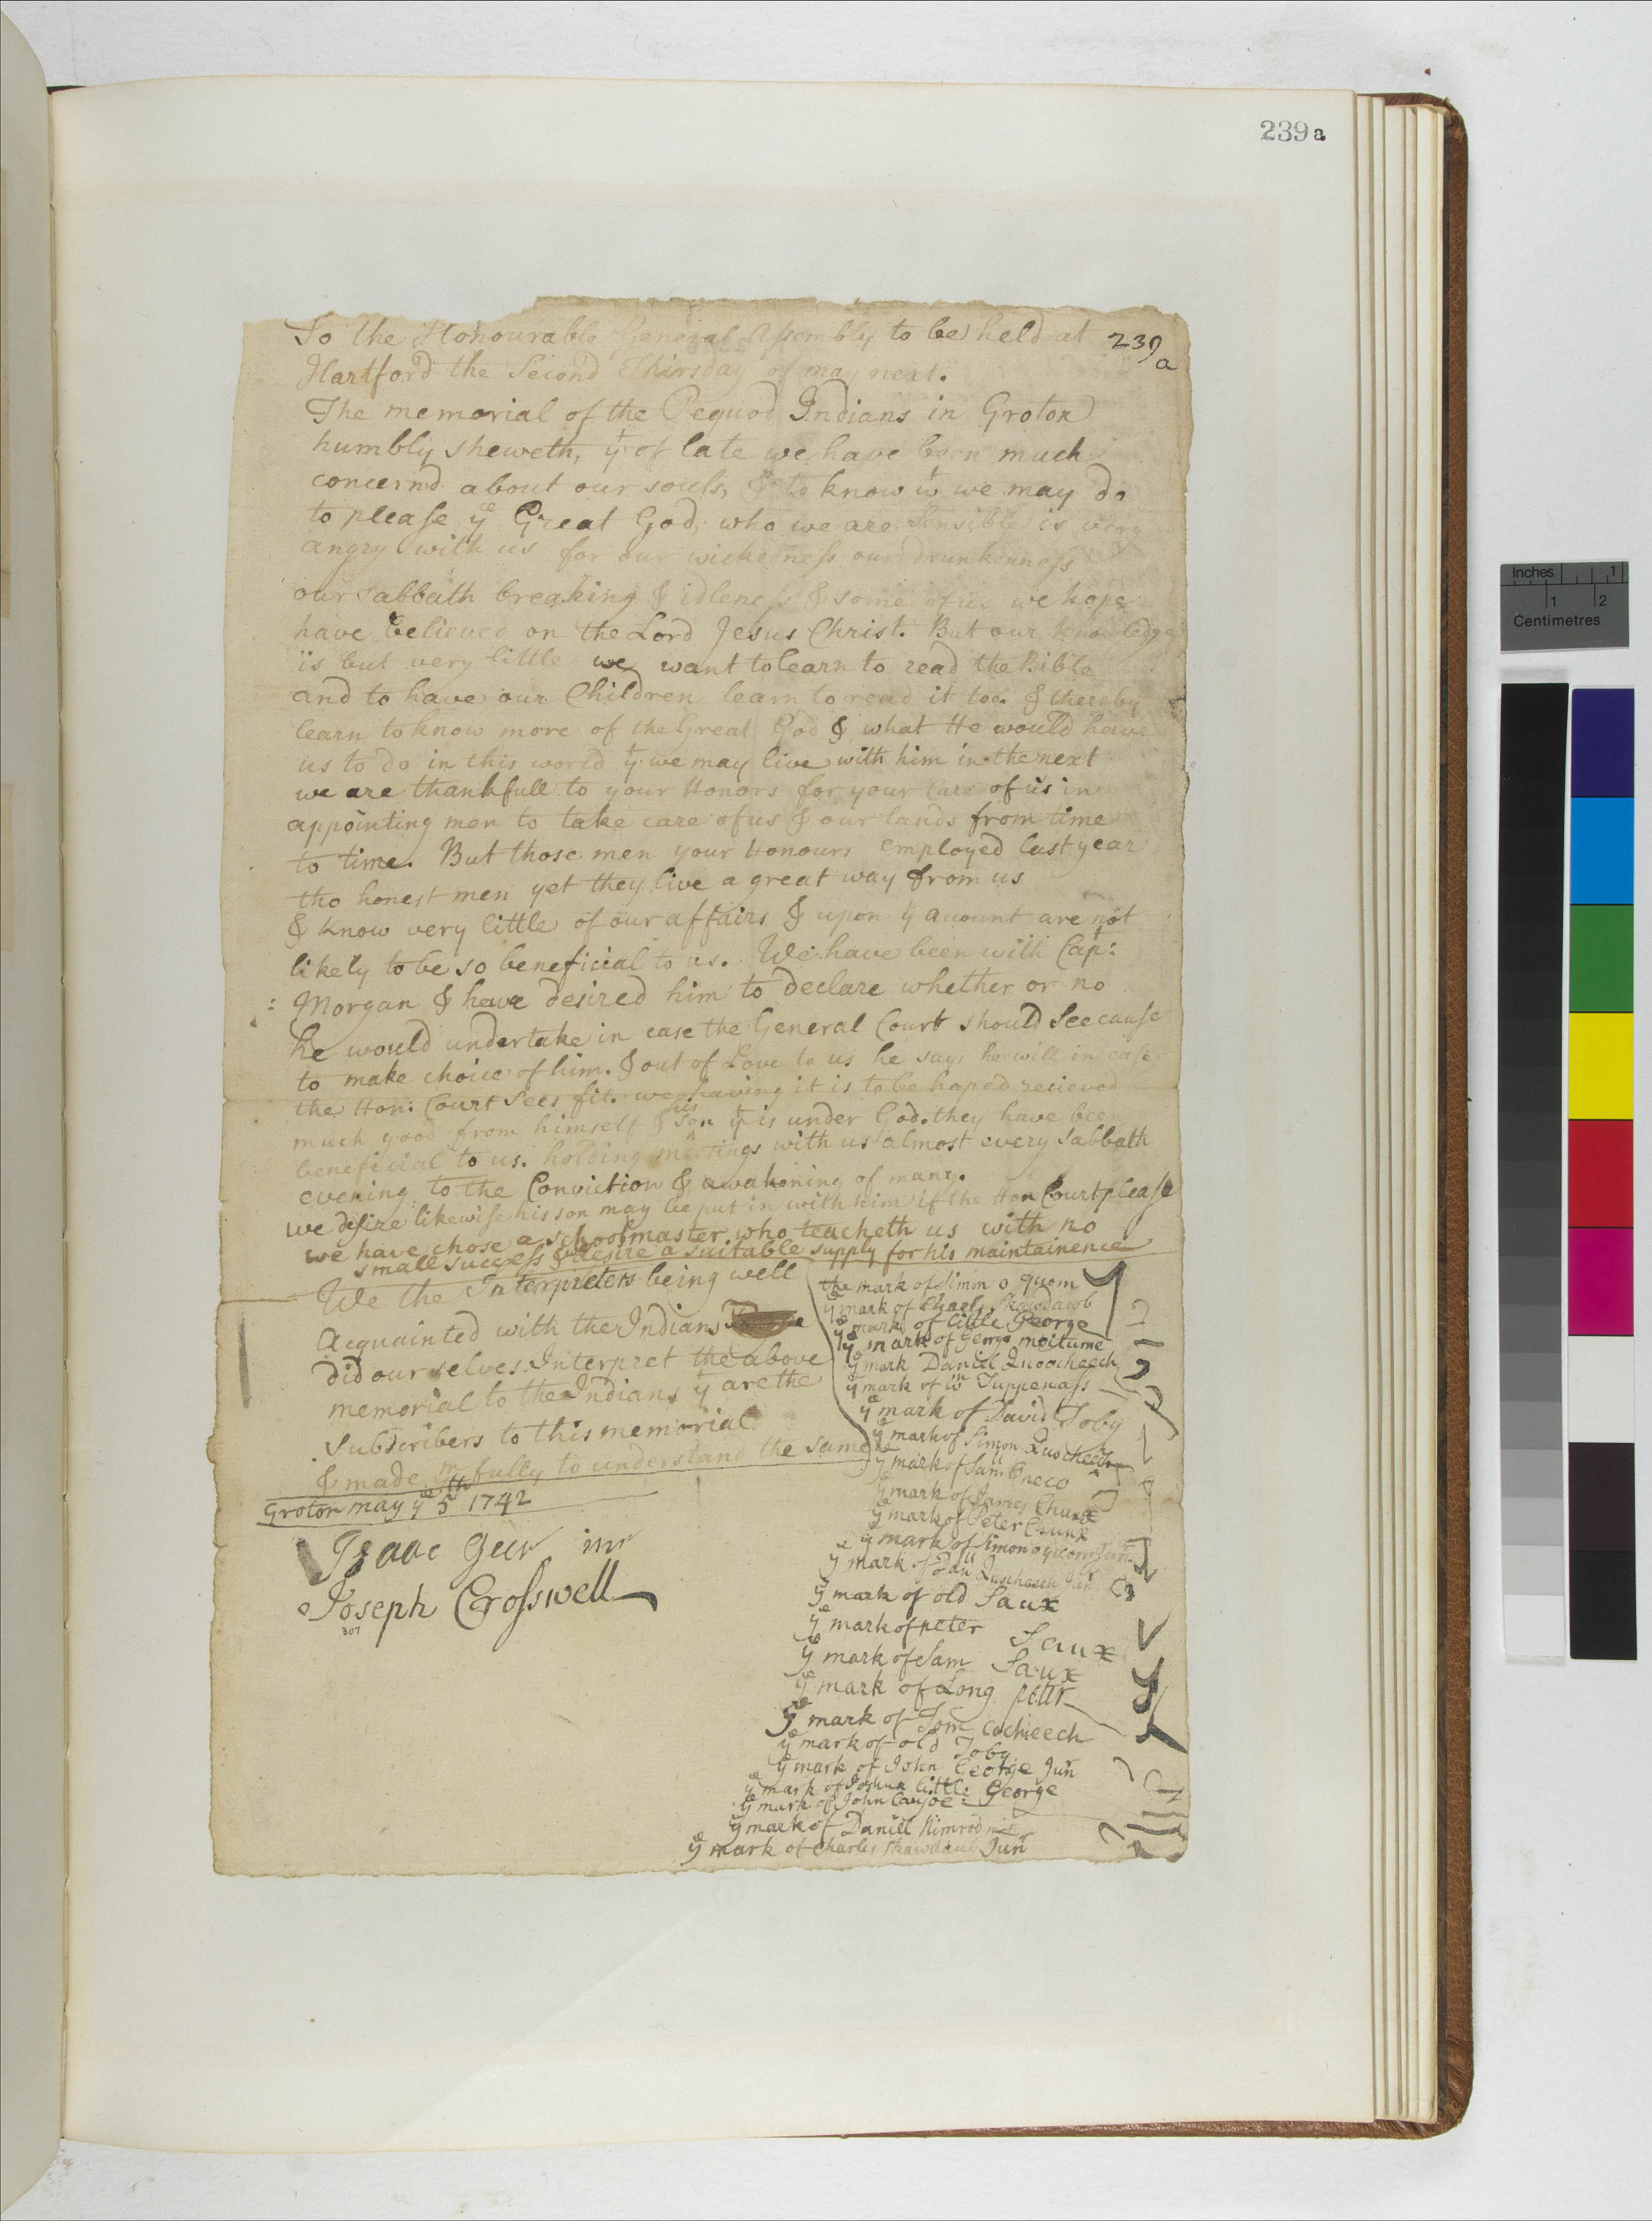 239 a
To the Honourable General Assembly to be held at 239 a
Hartford the Second Thirsday of may next.
The memorial of the Pequod Indians in Groton
humbly sheweth, yt of late we have been much
concern'd about our souls, & to know wt we may do
to please ye Great God, who we are sensible is very
angry with us for our wickedness our drunkenness
our Sabbath breaking & idleness & some of us we hope
have believed on the Lord Jesus Christ. But our knowledge
is but very little we want to learn to read the Bible
and to have our Children learn to read it too. & thereby
learn to know more of the Great God & what He would have
us to do in this world yt we may live with him in the next
we are thankfull to your Honors for your Care of us in
appointing men to take care of us & our lands from time
to time. But those men your Honours employed last year
tho honest men yet they live a great way from us
& know very little of our affairs & upon yt acount are not
likely to be so beneficial to us. We have been with Capt:
Morgan & have desired him to declare whether or no
he would undertake in case the General Court should See cause
to make choice of him. & out of Love to us he says he will in case
the Hon: Court Sees fit. we having it is to be hoped recieved
much good from himself & his Son yt is under God. they have been
beneficial to us. holding meetings with us almost every Sabbath
evening to the Conviction & awakening of many.
we desire likewise his son may be put in with him if the Hon Court please
we have chose a schoolmaster who teacheth us with no
small success & desire a suitable supply for his maintainence
We the Interpreters being well
Acquainted with the Indians
did our selves Interpret the above
memorial to the Indians yt are the
Subscribers to this memorial
& made ym fully to understand the same
Groton may ye 5th 1742
Isaac Geer
Joseph Crosswell
307
the mark of Simon o quom
ye mark of Charls Skawdawb
ye mark of little George
ye mark of George meitume
ye mark Daniel Quoocheech
ye mark of wm Tuppenass
ye mark of David Toby
ye mark of Simon Quocheets
ye mark of Samll Oneco
ye mark of James Chunx
ye mark of Peter Chunx
ye mark of Simon oquom Junr
ye mark of Danll Quocheech Junr
ye mark of old Saux
ye mark of peter Saux
ye mark of Sam Saux
ye mark of Long peter
ye mark of Tom Cocheech
ye mark of old Toby
ye mark of John George Junr
ye mark of Joshua little George
ye mark of John Caujoe
ye mark of Daniel Nimrod
ye mark of Charles Skawdaub Junr
Inches 1
1 2
Centimetres